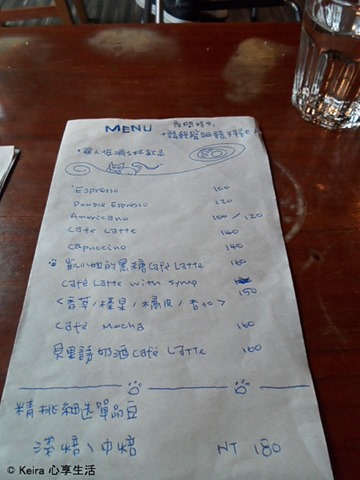 MENU
夜間時分,
·請輕聲細語
·最低消一杯飲品
Espresso 100
Double Espresso 120
Americano 100 / 120
Cafe Latte 140
Cappuccino 140
小姐的黑糖Café Latte 160
Café Latte with Syrup 150
<香草/榛果/橘皮/杏仁>
Café Mocha 160
貝里詩奶酒 Café Latte 160
精挑細選單品豆
淺焙、中焙 NT 180
© Keira 心享生活